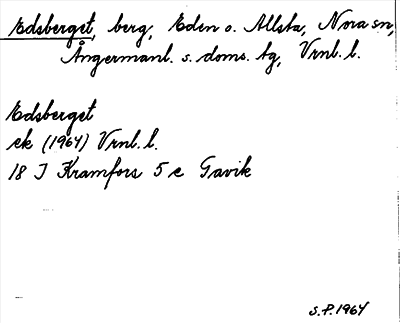 Edsberget, berg, Eden o. Allsta, Nora sn,
Ångermanl. s. doms. tg, Vrnl. l.
Edsberget
ek (1964) Vrnl. l.
18 I Kramfors 5 e Gavik
S.P. 1964